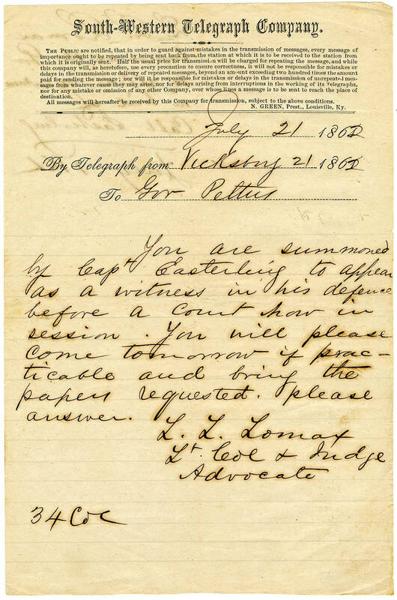 South-Western Telegraph Company.
THE PUBLIC are notified, that in order to guard against mistakes in the transmission of messages, every message of
importance ought to be repeated by being sent back from the station at which it is to be received to the station from
which it is originally sent. Half the usual price for transmission will be charged for repeating the message, and while
this company will, as heretofore, use every precaution to ensure correctness, it will not be responsible for mistakes or
delays in the transmission or delivery of repeated messages, beyond an amount exceeding two hundred times the amount
paid for sending the message; nor will it be responsible for mistakes or delays in the transmission of unrepeated mes-
sages from whatever cause they may arise, nor for delays arising from interruptions in the working of its Telegraphs,
nor for any mistake or omission of any other Company, over whose lines a message is to be sent to reach the place of
destination.
All messages will hereafter be received by this Company for transmission, subject to the above conditions.
N. GREEN, Prest., Louisville, Ky.
July 21 1862
By Telegraph from Vicksburg 21 1862
To Gov Pettus
You are summoned
by Capt Easterling to appear
as a witness in his defence
before a court now in
session. You will please
come tomorrow if prac-
ticable and bring the
papers requested. please
answer.
L. L. Lomax
Lt Col & Judge
Advocate
34 Col